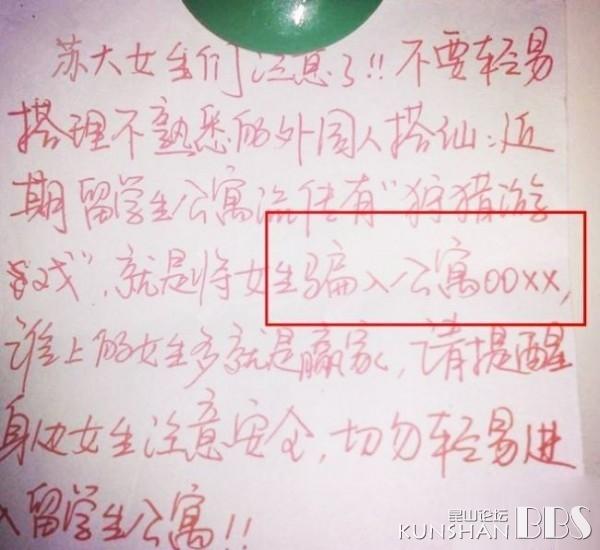 苏大女生们注意了!!不要轻易
搭理不熟悉的外国人搭仙:近
期留学生公寓流传有"狩猎游
戏",就是将女生骗入公寓OOXX,
谁上的女生多就是赢家,请提醒
身边女生注意安全,切勿轻易进
入留学生公寓!!
昆山论坛
KUNSHAN BBS